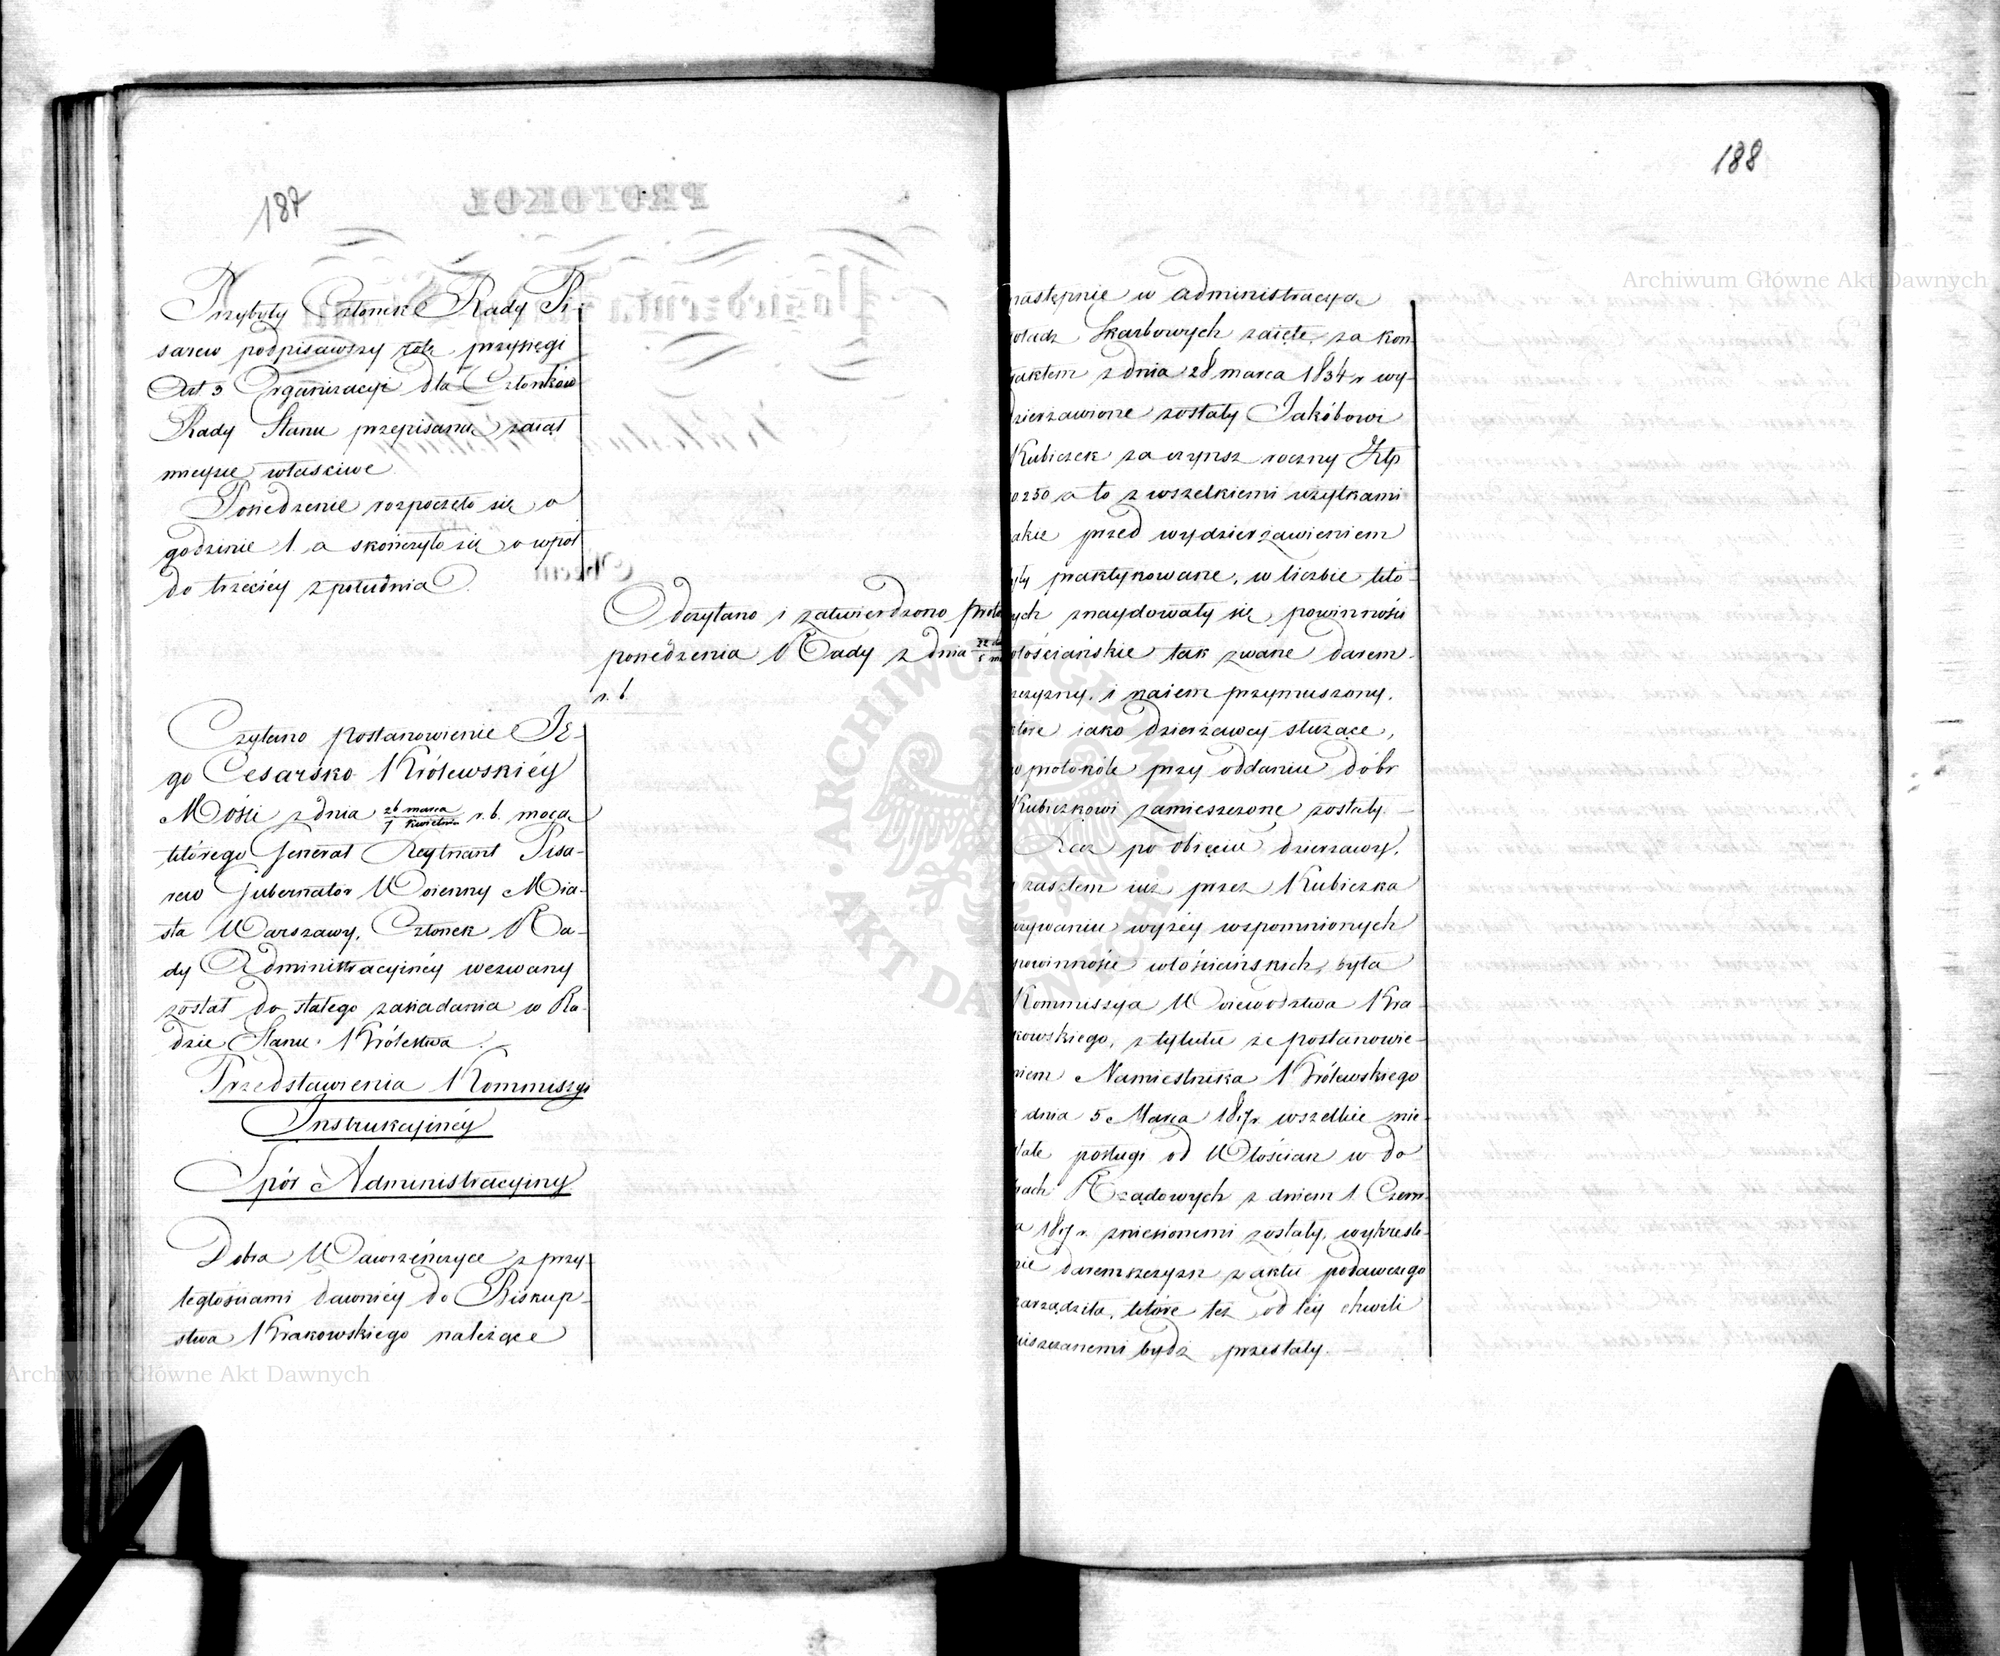 187
Przybyły Członek Rady Pi-
sarew podpisawszy rotę przysięgi
Art 3 Organizacyi dla Członków
Rady Stanu przepisaną zaiął
mieysce właściwe
Posiedzenie rozpoczęło się o
godzinie 1. a skończyło się o wpół
do trzeciey z południa.
Odczytano i zatwierdzono proto
posiedzenia Rady z dnia
r. b.
Czytano postanowienie Je-
go Cesarsko Królewskiéy
Mości z dnia 26 marca / 7 kwietnia r. b. mocą
którego Jenerał Leytnant Pisa-
rew Gubernator Woienny Mia-
sta Warszawy, Członek Ra-
dy Administracyinéy wezwany
został do stałego zasiadania w Ra-
dzie Stanu Królestwa.
Przedstawienia Kommissyi
Instrukcyinéy
Spór Administracyiny
Dobra Wawrzeńczyce z przy-
ległościami dawniéy do Biskup-
stwa Krakowskiego należące
188
następnie w administracyą
władz Skarbowych zaięte, za kon-
raktem z dnia 28 marca 1834 r wy-
dzierzawione zostały Jakóbowi
Kubiczek za czynsz roczny Złp
0250 a to z wszelkiemi użytkami
akie przed wydzierżawieniem
yły praktykowane, w liczbie któ-
ych znaydowały się powinności
włościańskie tak zwane darem-
szczyzny, i naiem przymuszony,
które iako dzierżawcy służące,
w protokóle przy oddaniu dóbr
Kubiczkowi zamieszczone zostały.
Lecz po obięciu dzierżawy,
zaszłem iuż przez Kubiczka
używaniu wyżéy wspomnionych
powinności włościańskich, była
Kommissya Woiewództwa Kra
kowskiego, z tytułu że postanowie-
niem Namiestnika Królewskiego
z dnia 5 Marca 1817 r. wszelkie nie-
stałe posługi od Włościan w do
brach Rządowych z dniem 1 Czerw-
a 1817 r. zniesionemi zostały, wykreśle-
nie daremszczyzn z aktu podawczego
zarządziła, które też od téy chwili
uiszczanemi bydź przestały.
Archiwum Główne Akt Dawnych
Archiwum Główne Akt Dawnych
ARCHIWUM GŁÓWNE AKT DAWNYCH